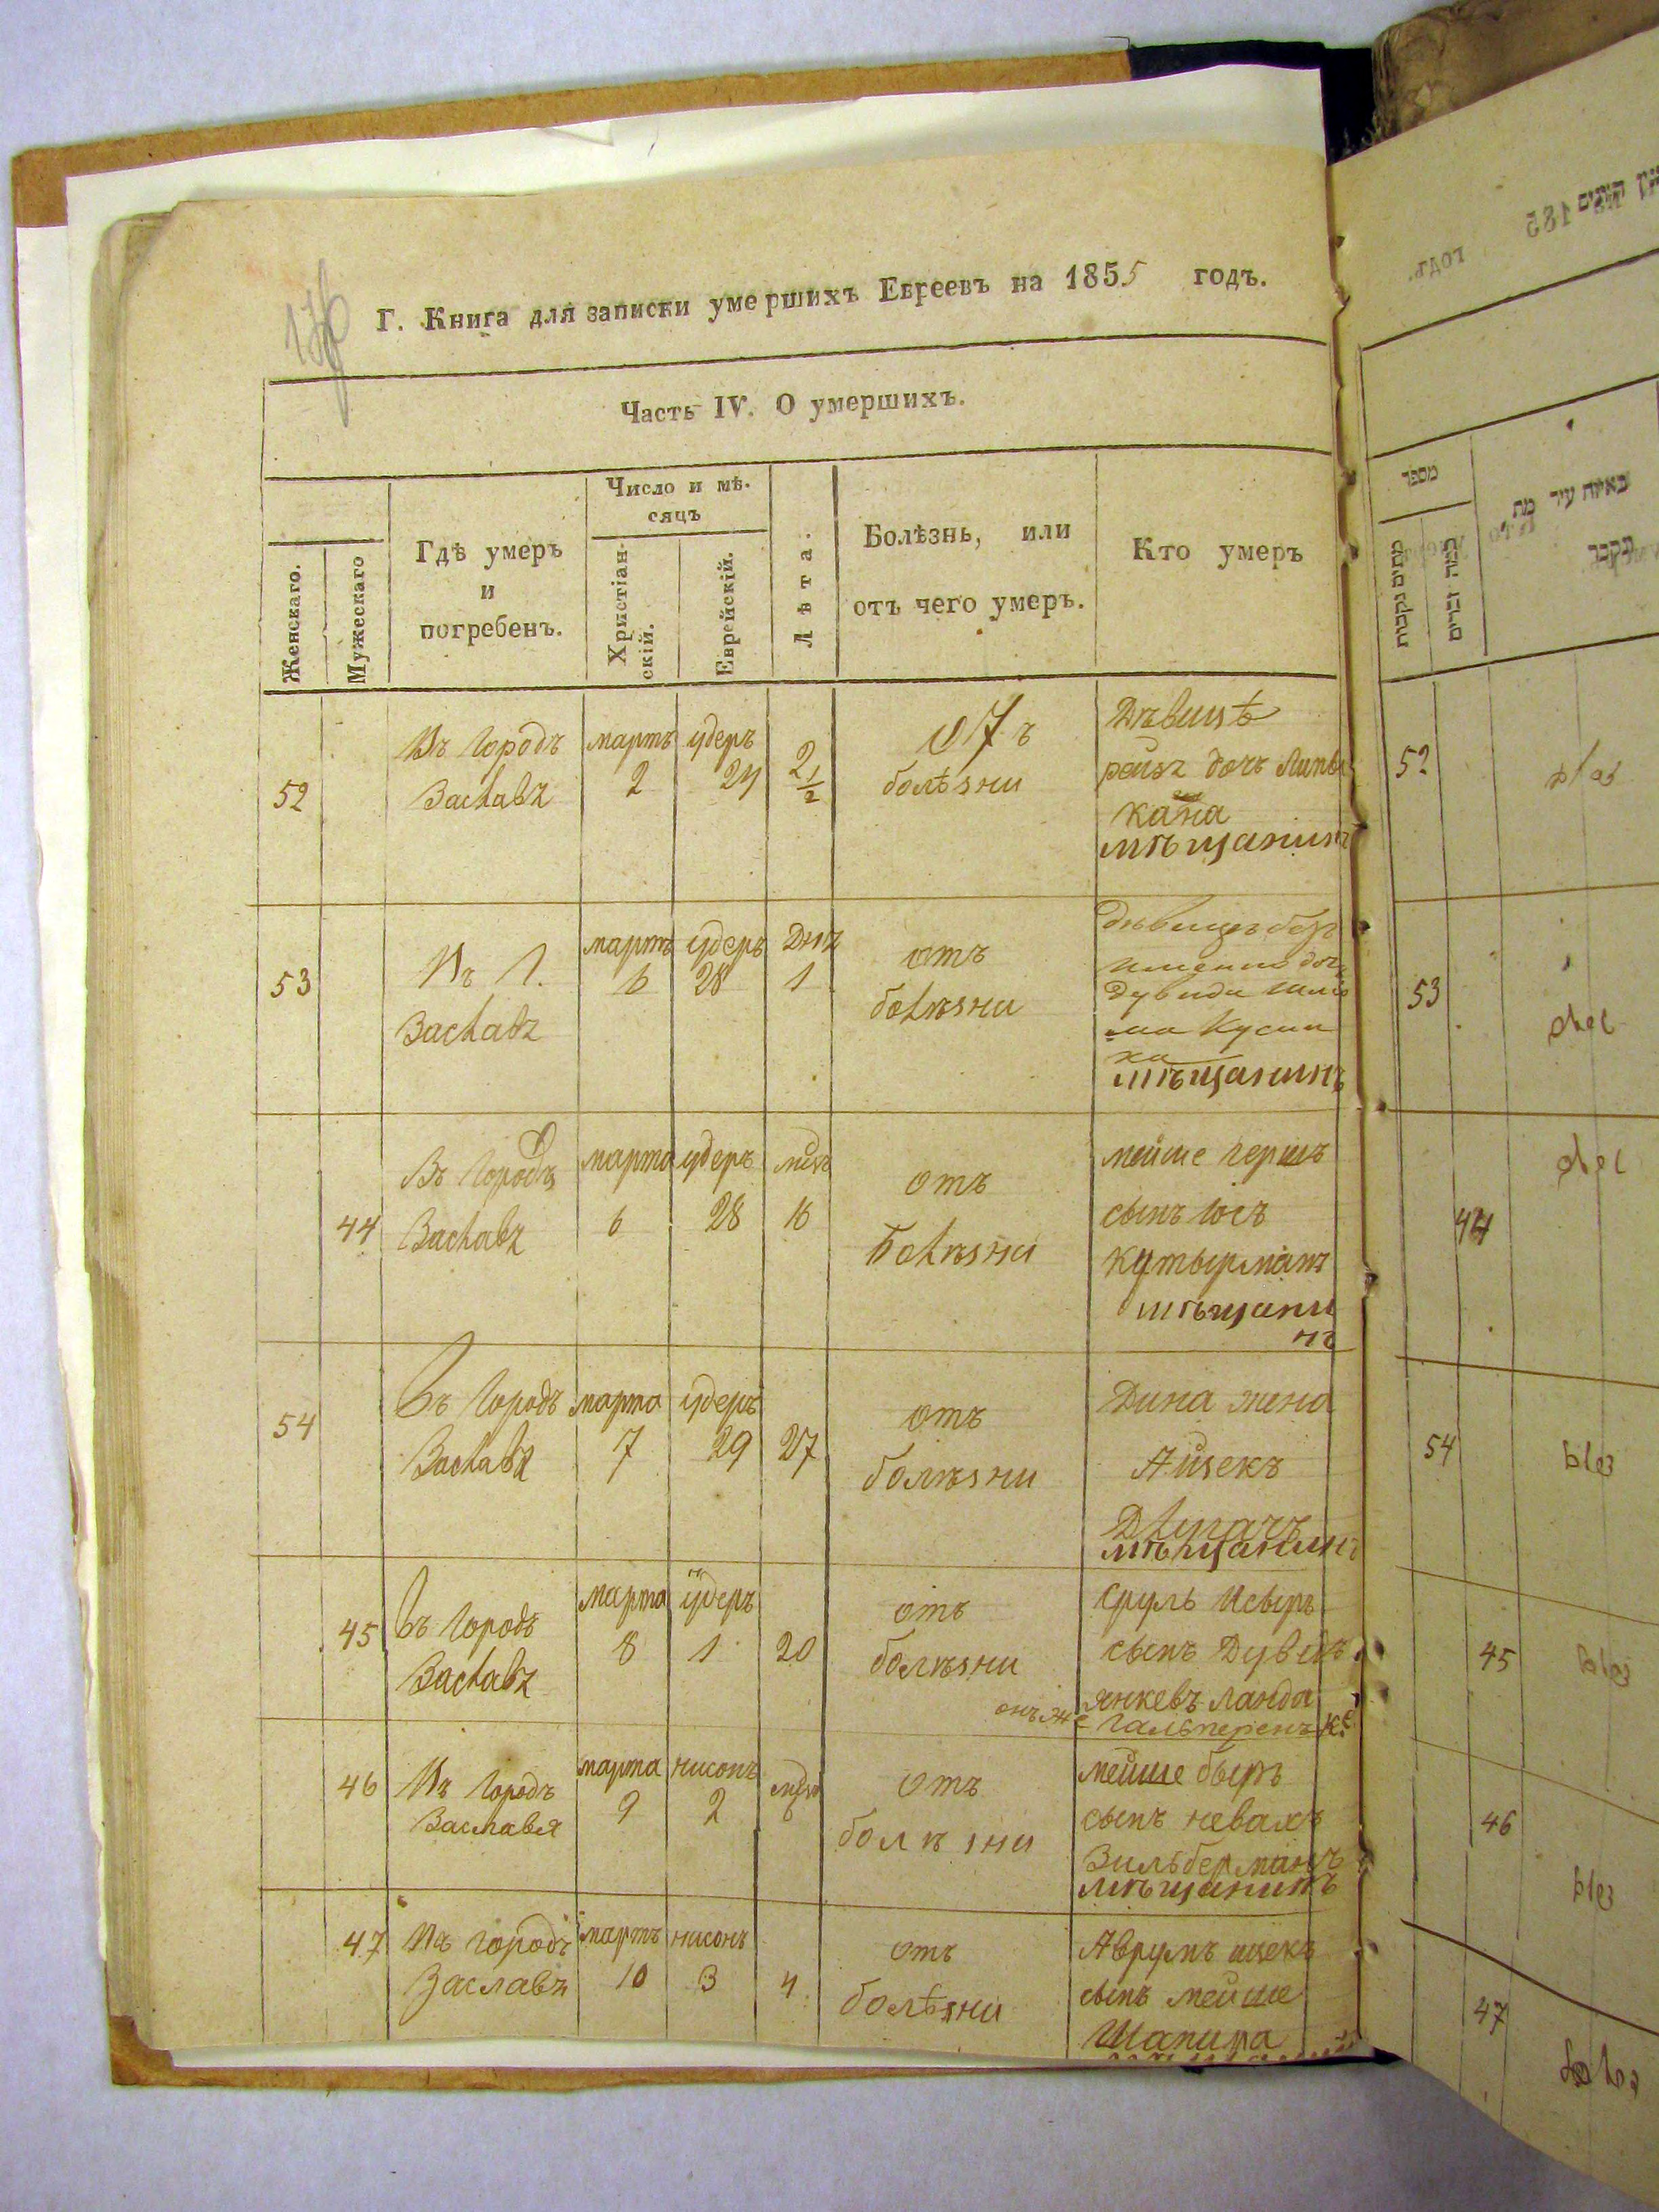 Г. Книга для записки умершихъ Евреевъ на 1855 годъ.
Часть IV. О умершихъ.
Женскаго.
Мужескаго
Гдѣ умеръ
и
погребенъ.
Число и мѣ-
сяцъ
Христіан-
скій.
Еврейскій.
Лѣта.
Болѣзнь, или
отъ чего умеръ.
Кто умеръ
52
Въ Городъ
Заславъ
мартъ
2
удеръ
24
2 1/2
отъ
болѣзни
Дѣвицѣ
рейзъ дочъ
кана
мѣщанинъ
53
Въ Г.
Заславъ
мартъ
6
удеръ
28
1
отъ
болѣзни
дѣвица без
имении доч
дувида
мѣщанинъ
44
Въ Городъ
Заславъ
марта
6
удеръ
28
16
отъ
болѣзни
мейше гершъ
сынъ іосъ
кутырманъ
мѣщани
нъ
54
Въ Городъ
Заславъ
марта
7
удеръ
29
27
отъ
болѣзни
Дина жена
Айзекъ
мѣщанинъ
45
Въ Городъ
Заславъ
марта
8
удеръ
1
20
отъ
болѣзни
сруль Исыръ
сынъ Дувидъ
янкевъ ланда
онъ же Гальперенъ
46
Въ Городъ
Заславля
марта
9
нисонъ
2
6
отъ
болѣзни
мейше беръ
сынъ невахъ
Зильберманъ
мѣщанинъ
47
Въ городъ
Заславъ
мартъ
10
нисонъ
3
4
отъ
болѣзни
Аврумъ ицекъ
сынъ мейше
Шапира
185
годъ.
מספר
באיזה עיר מת
נקבר
52
53
44
54
45
46
47